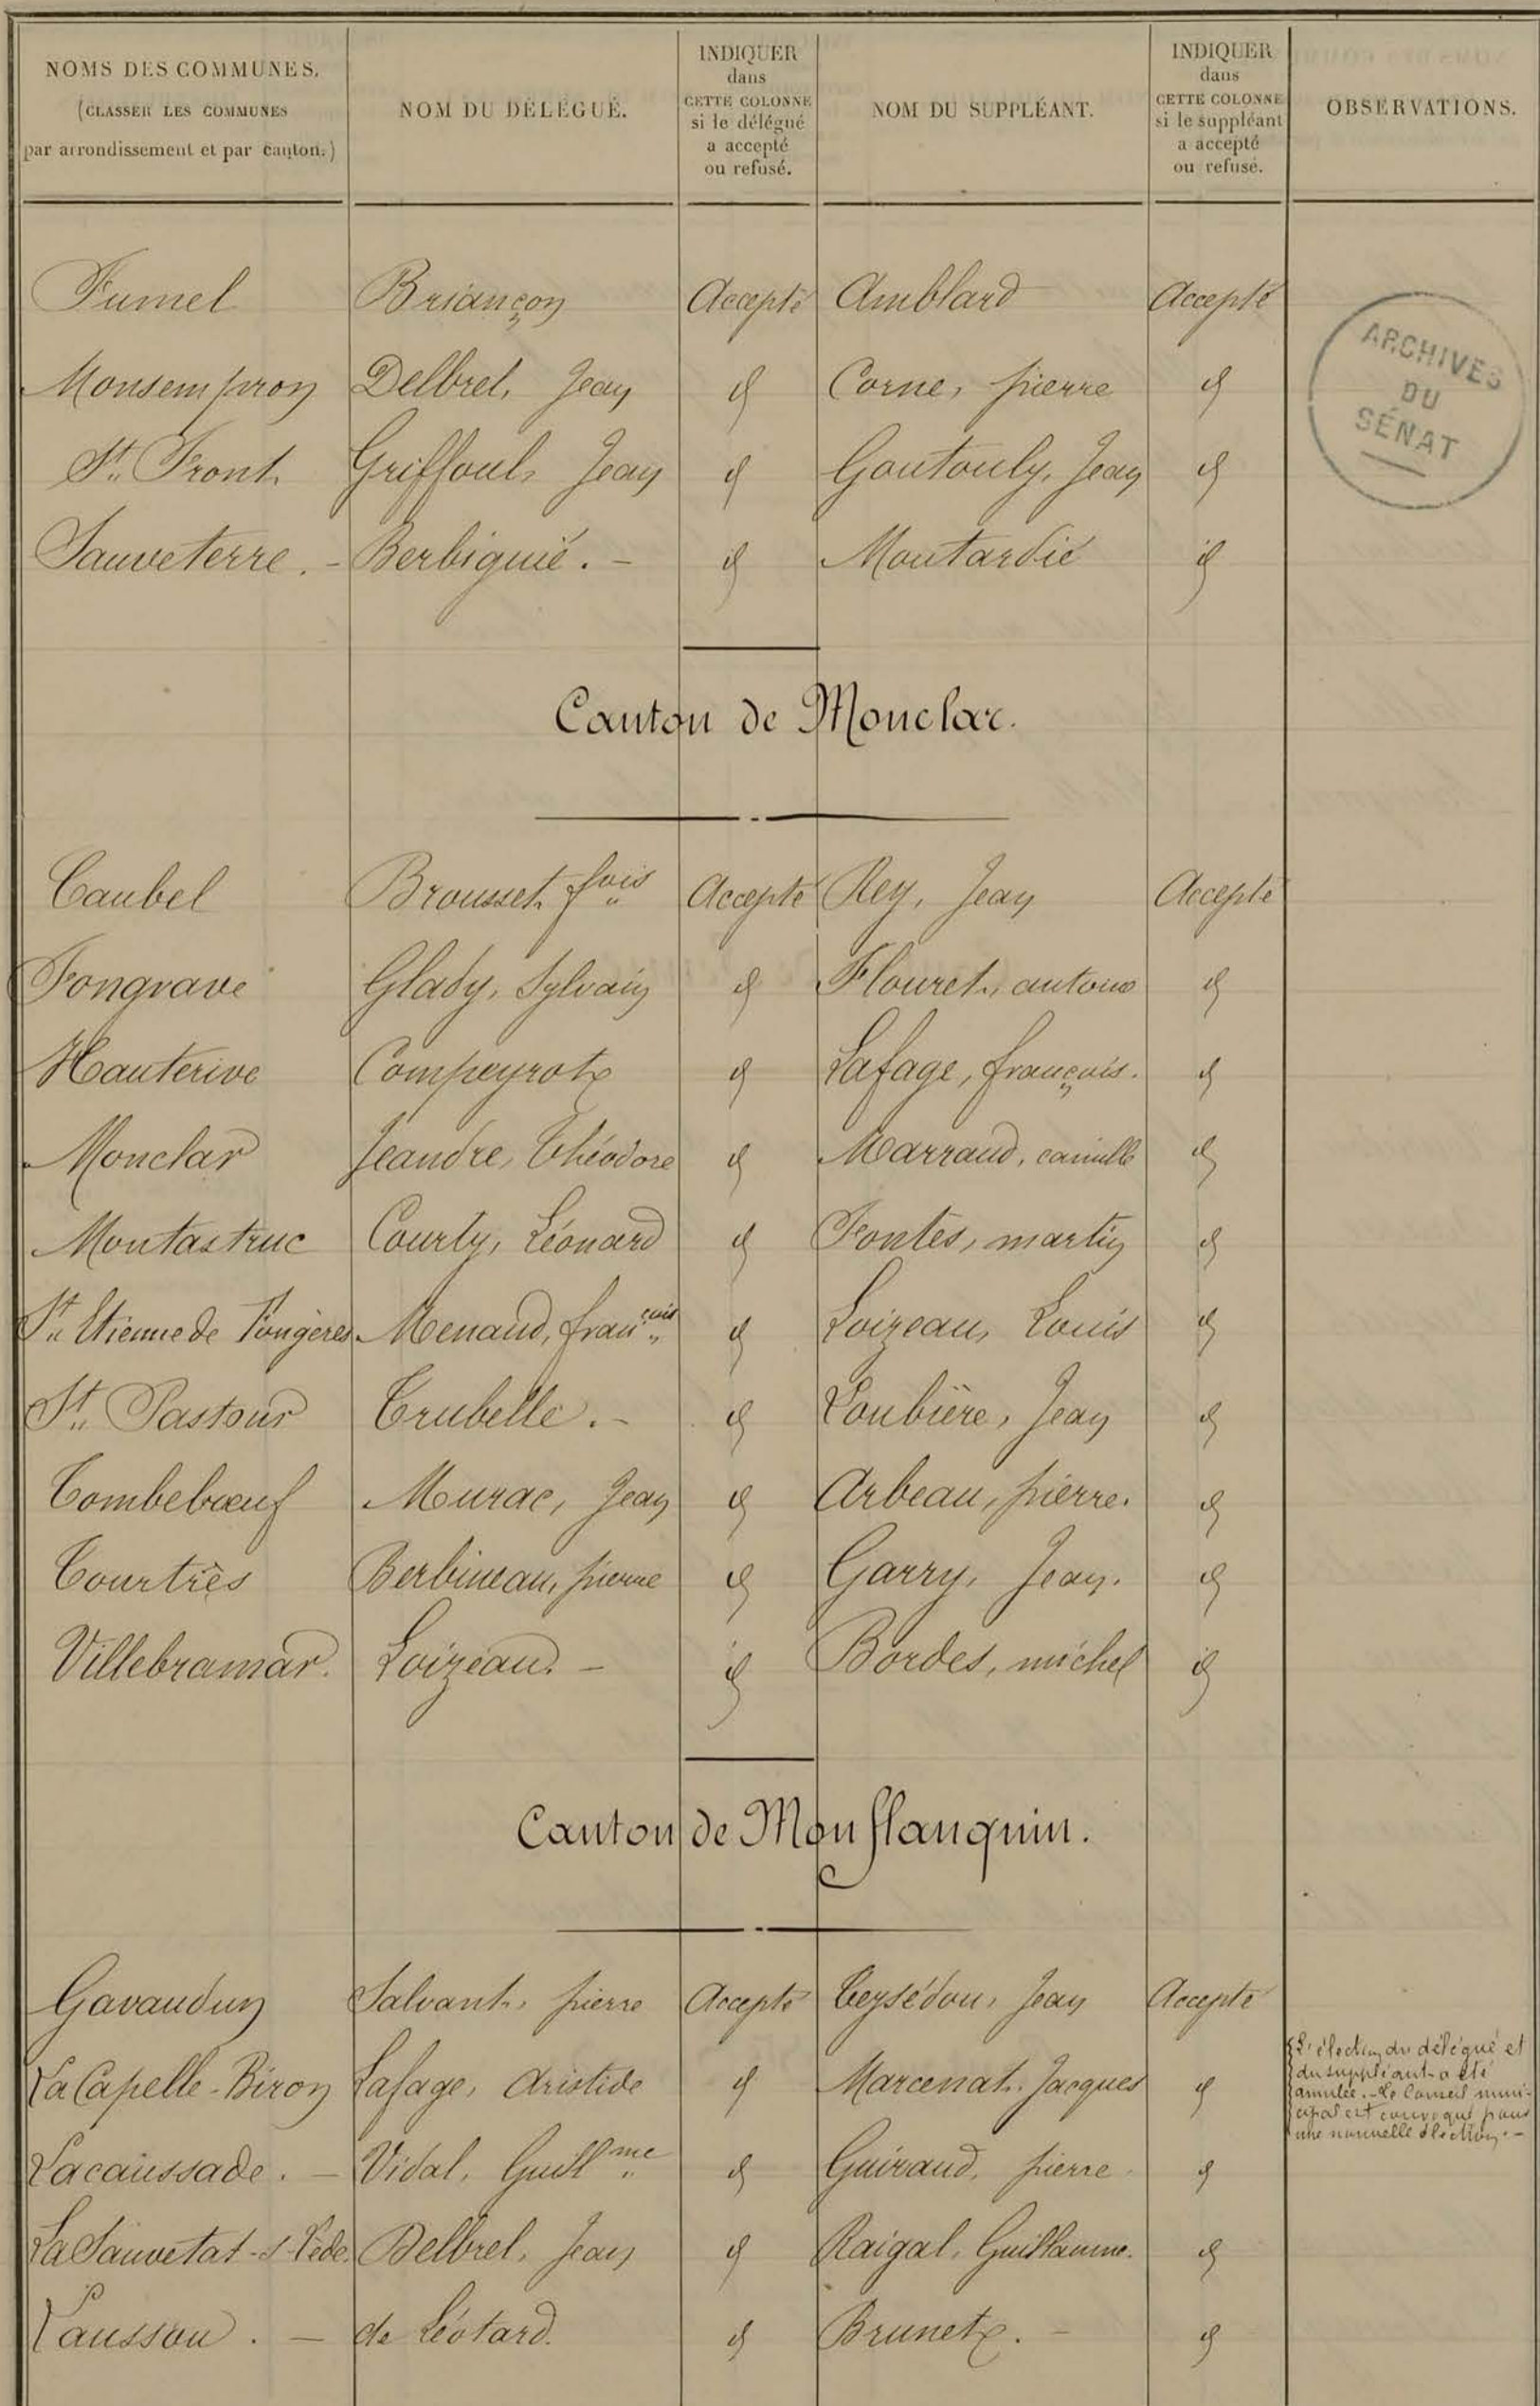 NOMS DES COMMUNES.
(CLASSER LES COMMUNES
par arrondissement et par canton.)
NOM DU DÉLÉGUÉ.
INDIQUER
dans
CETTE COLONNE
si le délégué
a accepté
ou refusé.
NOM DU SUPPLÉANT.
INDIQUER
dans
CETTE COLONNE
si le suppléant
a accepté
ou refusé.
OBSERVATIONS.
Fumel Briançon Accepté Amblard Accepté
Monsempron Delbrel, Jean id Corne, pierre id
St. Front Griffoul, Jean id Goutouly, Jean id
Sauveterre. - Berbiguié. - id Moutardié id
ARCHIVES
DU
SÉNAT
Canton de Monclar.
Caubel Brousset fois Accepté Rey, Jean Accepté
Fongrave Glady, Sylvain id Flouret, antoine id
Hauterive Compeyrot id Lafage, françois. id
Monclar Jeandre, Théodore id Marraud, camille id
Montastruc Courty, Léonard id Fontès, martin id
St Etienne de Fougères Menaud, françois id Loizeau, Louis id
St. Pastour Trubelle. - id Loubière, Jean id
Tombebœuf Murac, Jean id Arbeau, pierre. id
Tourtrès Berbineau, pierre id Garry, Jean. id
Villebramar. Loizeau. - id Bordes, michel id
Canton de Monflanquin.
Gavaudun Salvant, pierre Accepté Teysédou, Jean Accepté
La Capelle-Biron Lafage, Aristide id Marcenat, Jacques id
L'élection du délégué et
du suppléant a été
annulée. - Le Conseil muni-
cipal est convoqué pour
une nouvelle élection. -
Lacaussade. - Vidal, Guillme id Guiraud, pierre. id
La Sauvetat-s-Lède. Delbrel, Jean id Raigal, Guillaume. id
Laussou. - de Léotard. id Brunet. - id